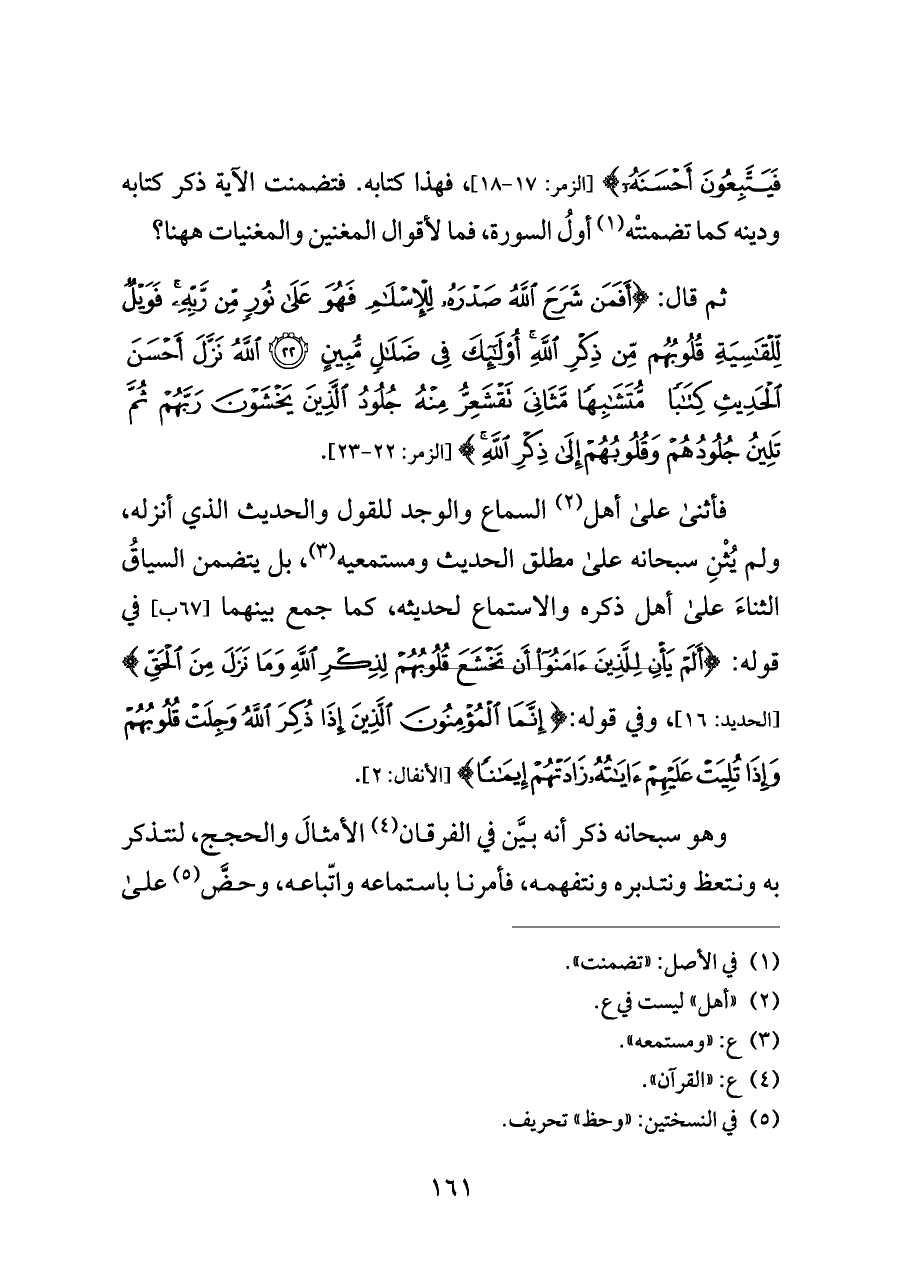 فَيَتَّبِعُونَ أَحْسَنَهُۥٓ﴾ [الزمر: ١٧-١٨]، فهذا كتابه. فتضمنت الآية ذكر كتابه
ودينه كما تضمنتْه(١) أولُ السورة، فما لأقوال المغنين والمغنيات ههنا؟
ثم قال: ﴿أَفَمَن شَرَحَ ٱللَّهُ صَدْرَهُۥ لِلْإِسْلَٰمِ فَهُوَ عَلَىٰ نُورٍ مِّن رَّبِّهِۦۚ فَوَيْلٌ
لِّلْقَٰسِيَةِ قُلُوبُهُم مِّن ذِكْرِ ٱللَّهِۚ أُوْلَٰٓئِكَ فِى ضَلَٰلٍ مُّبِينٍ ۝٢٢ ٱللَّهُ نَزَّلَ أَحْسَنَ
ٱلْحَدِيثِ كِتَٰبًا مُّتَشَٰبِهًا مَّثَانِىَ تَقْشَعِرُّ مِنْهُ جُلُودُ ٱلَّذِينَ يَخْشَوْنَ رَبَّهُمْ ثُمَّ
تَلِينُ جُلُودُهُمْ وَقُلُوبُهُمْ إِلَىٰ ذِكْرِ ٱللَّهِۚ﴾ [الزمر: ٢٢-٢٣].
فأثنىٰ علىٰ أهل(٢) السماع والوجد للقول والحديث الذي أنزله،
ولم يُثْنِ سبحانه علىٰ مطلق الحديث ومستمعيه(٣)، بل يتضمن السياقُ
الثناءَ علىٰ أهل ذكره والاستماع لحديثه، كما جمع بينهما [٦٧ب] في
قوله: ﴿أَلَمْ يَأْنِ لِلَّذِينَ ءَامَنُوٓا۟ أَن تَخْشَعَ قُلُوبُهُمْ لِذِكْرِ ٱللَّهِ وَمَا نَزَلَ مِنَ ٱلْحَقِّ﴾
[الحديد: ١٦]، وفي قوله:﴿إِنَّمَا ٱلْمُؤْمِنُونَ ٱلَّذِينَ إِذَا ذُكِرَ ٱللَّهُ وَجِلَتْ قُلُوبُهُمْ
وَإِذَا تُلِيَتْ عَلَيْهِمْ ءَايَٰتُهُۥ زَادَتْهُمْ إِيمَٰنًا﴾ [الأنفال: ٢].
وهو سبحانه ذكر أنه بيَّن في الفرقان(٤) الأمثالَ والحجج، لنتذكر
به ونتعظ ونتدبره ونتفهمه، فأمرنا باستماعه واتّباعه، وحضَّ(٥) علىٰ
(١) في الأصل: «تضمنت».
(٢) «أهل» ليست في ع.
(٣) ع: «ومستمعه».
(٤) ع: «القرآن».
(٥) في النسختين: «وحظ» تحريف.
١٦١